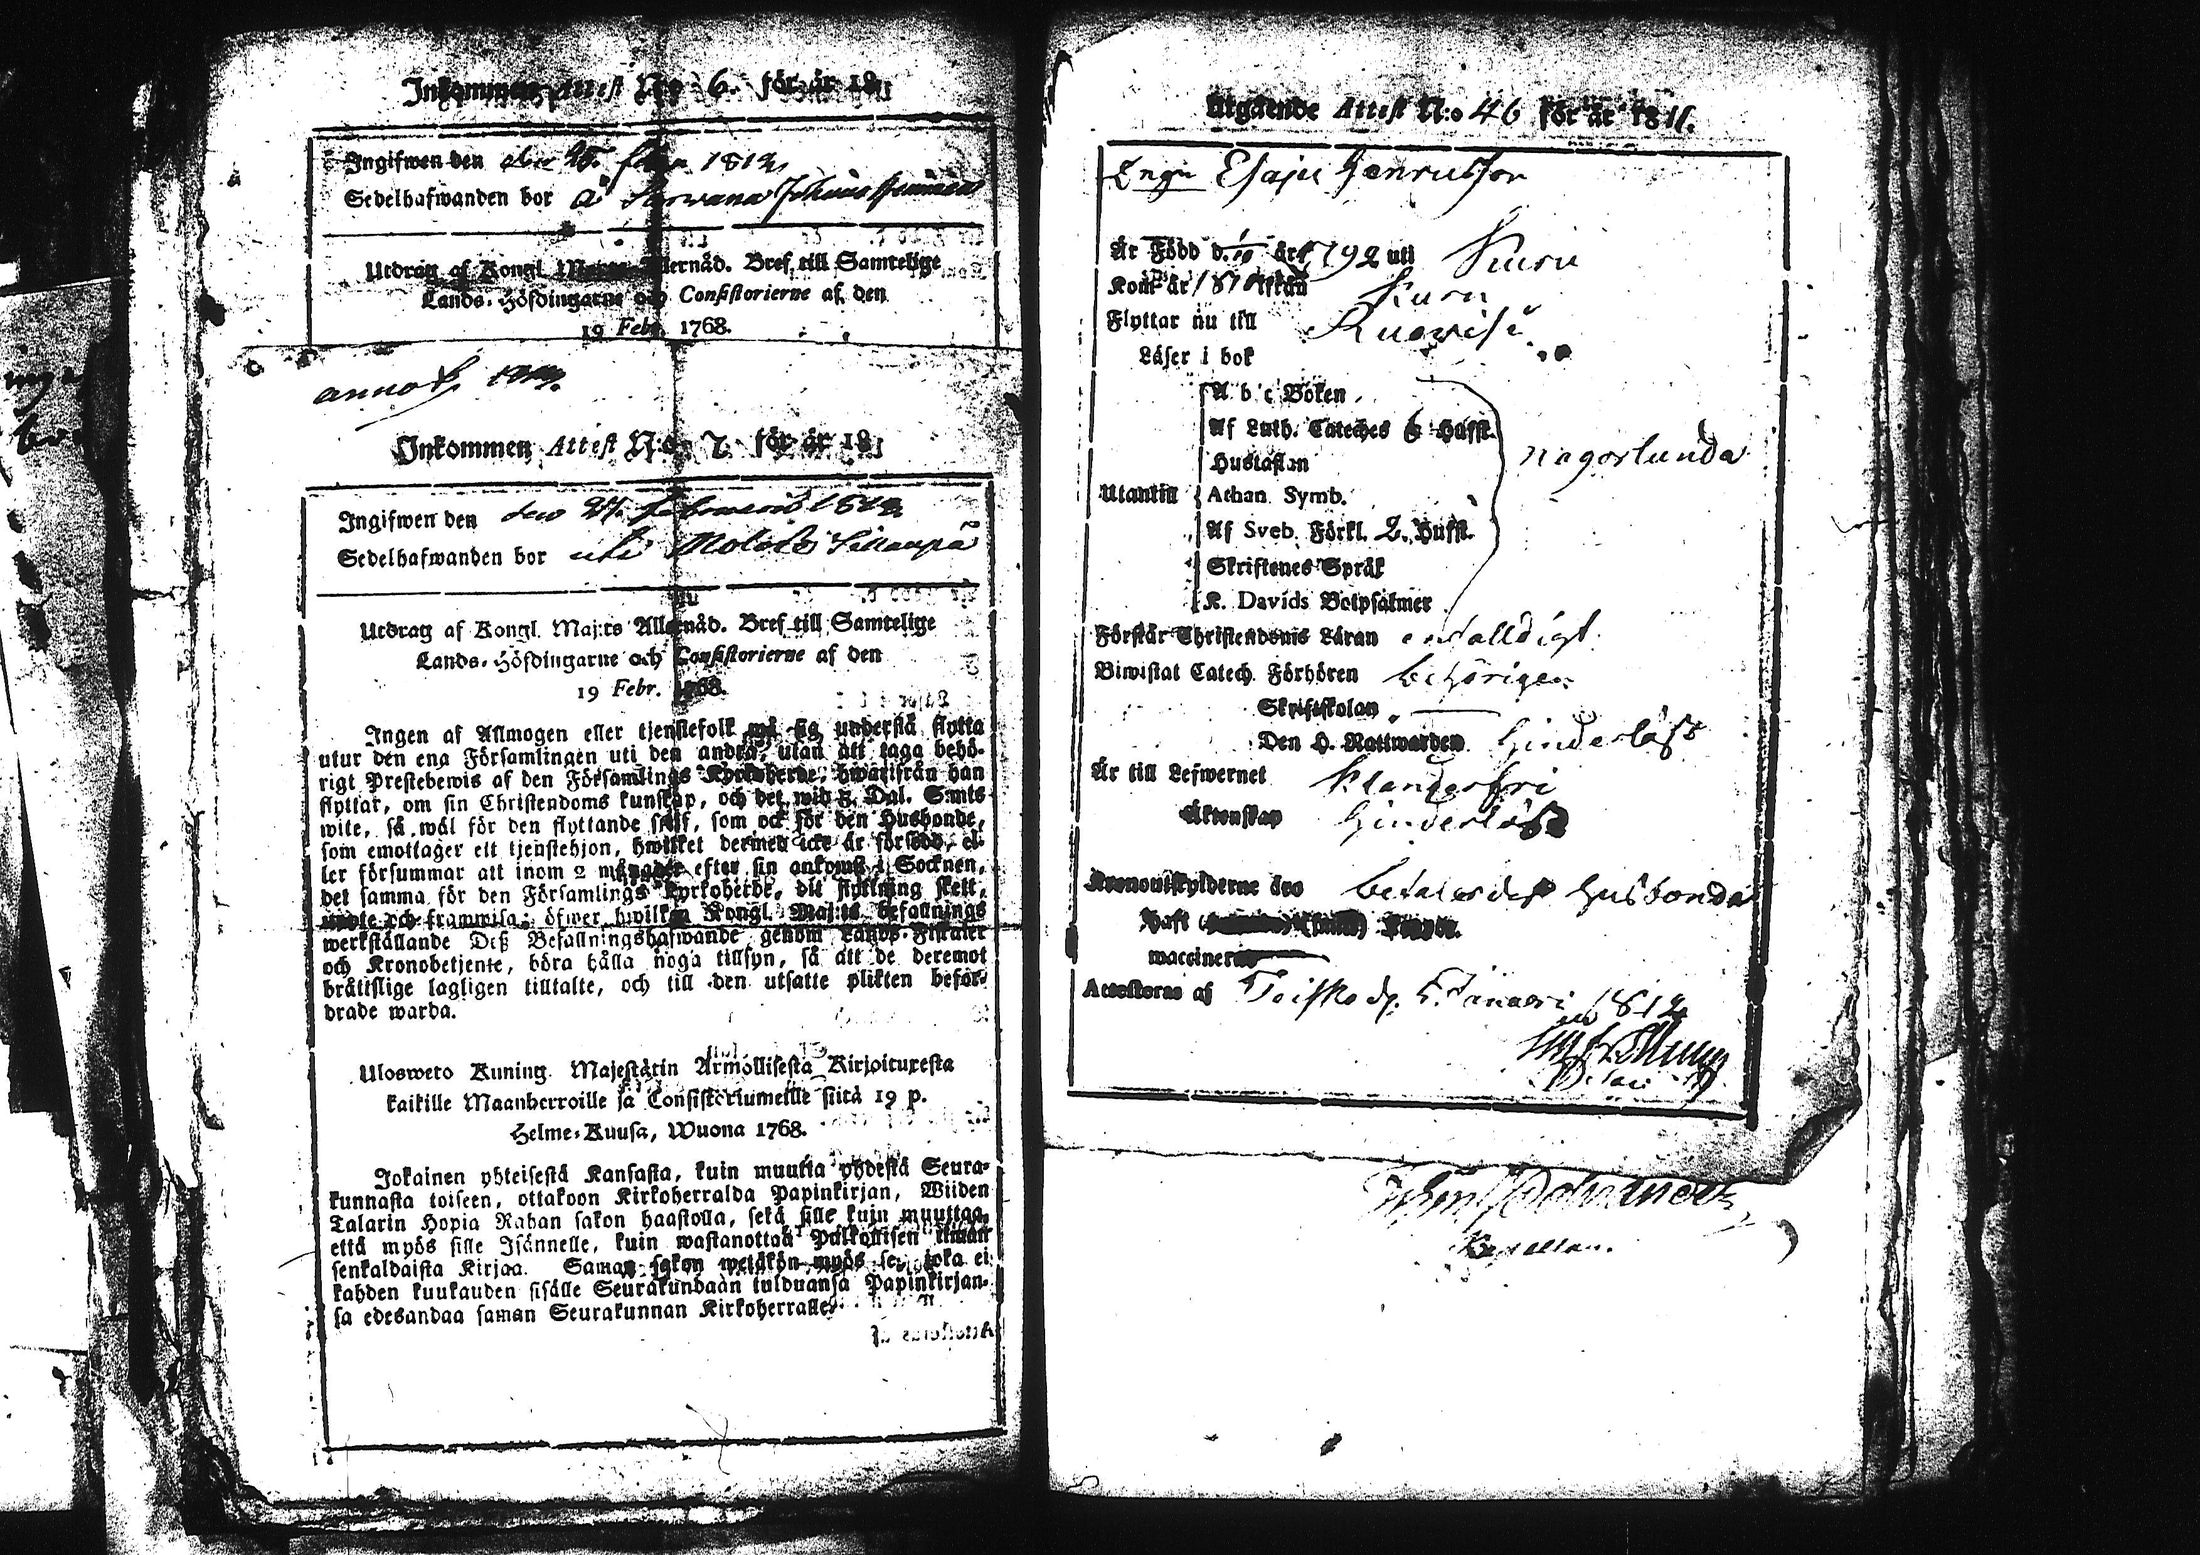 Inkommen Attest No 6. för år 181
Ingifwen den 1812
Sedelhafwanden bor å
Utdrag af Kongl. Allernåd. Bref till Samtelige
Lands-Höfdingarne och Consistorierne af den
19 Febr. 1768.
anno
Inkommen Attest N:o 7. för år 181
Ingifwen den den 27. 1812
Sedelhafwanden bor uti
Utdrag af Kongl. Maj:ts Allernåd. Bref till Samtelige
Lands-Höfdingarne och Consistorierne af den
19 Febr. 1768.
Ingen af Allmogen eller tjenstefolk må sig understå flytta
utur den ena Församlingen uti den andra, utan att taga behö-
rigt Prestebewis af den Församlings Kyrkoherde, hwarifrån han
flyttar, om sin Christendoms kunskap, och det wid 5. Dal. S:mts
wite, så wäl för den flyttande sjelf, som ock för den Husbonde,
som emottager ett tjenstehjon, hwilket dermed icke är försedd, el-
ler försummar att inom 2 månader efter sin ankomst i Socknen,
det samma för den Församlings Kyrkoherde, dit flyttning skett,
och framwisa; öfwer hwilken Kongl. Maj:ts befallnings
werkställande Deß Befallningshafwande genom Lands-Fiskaler
och Kronobetjente, böra hålla noga tillsyn, så att de deremot
bråtslige lagligen tilltalte, och till den utsatte plikten beför-
drade warda.
Ulosweto Kuning. Majestätin Armollisesta Kirjoituxesta
kaikille Maanherroille ja Consistoriumeille siitä 19 p.
Helme-Kuusa, Wuona 1768.
Jokainen yhteisestä Kansasta, kuin muutta yhdestä Seura-
kunnasta toiseen, ottakoon Kirkoherralda Papinkirjan, Wiiden
Talarin Hopia Rahan sakon haastolla, sekä sille kuin muuttaa,
että myös sille Isännelle, kuin wastanottaa Palkollisen ilman
senkaldaista Kirjaa. Saman sakon wetäkön myös se, joka ei
kahden kuukauden sisälle Seurakundaan tulduansa Papinkirjan-
sa edesandaa saman Seurakunnan Kirkoherralle.
Utgående Attest N:o 46 för år 1811.
Esajas Henricsson
Är Född d. år 1792 uti Kuru
Kom år ifrån Kuru
Flyttar nu till Ruovesi
Läser i bok
A b c Boken
Af Luth. Cateches 6 Hufst.
Hustaflan
någorlunda
Utantill Athan. Symb.
Af Sveb. Förkl. 2. Hufst.
Skriftenes Språk
K. Davids Botpsalmer
Förstår Christendoms Läran enfalldigt
Biwistat Catech. Förhören behörigen
Skriftskolan
Den H. Nattwarden hinderlöst
Är till Lefwernet klanderfri
Äktenskap hinderlös
Kronoutskylderne äro betalas des husbonda
Haft
waccinerad
Attesteras af Teisko d. 5. Januari 1812
Capellan.